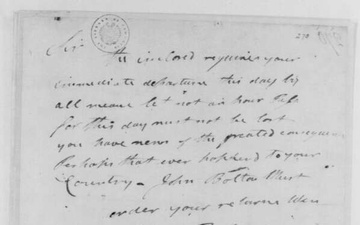 Sir The inclosd requires your
immediate departure this day by
all means let not an hour
for this day must not be lost
you have news of the greatest consequence
perhaps that ever happend to your
Country - John Bolton must
order your returne when